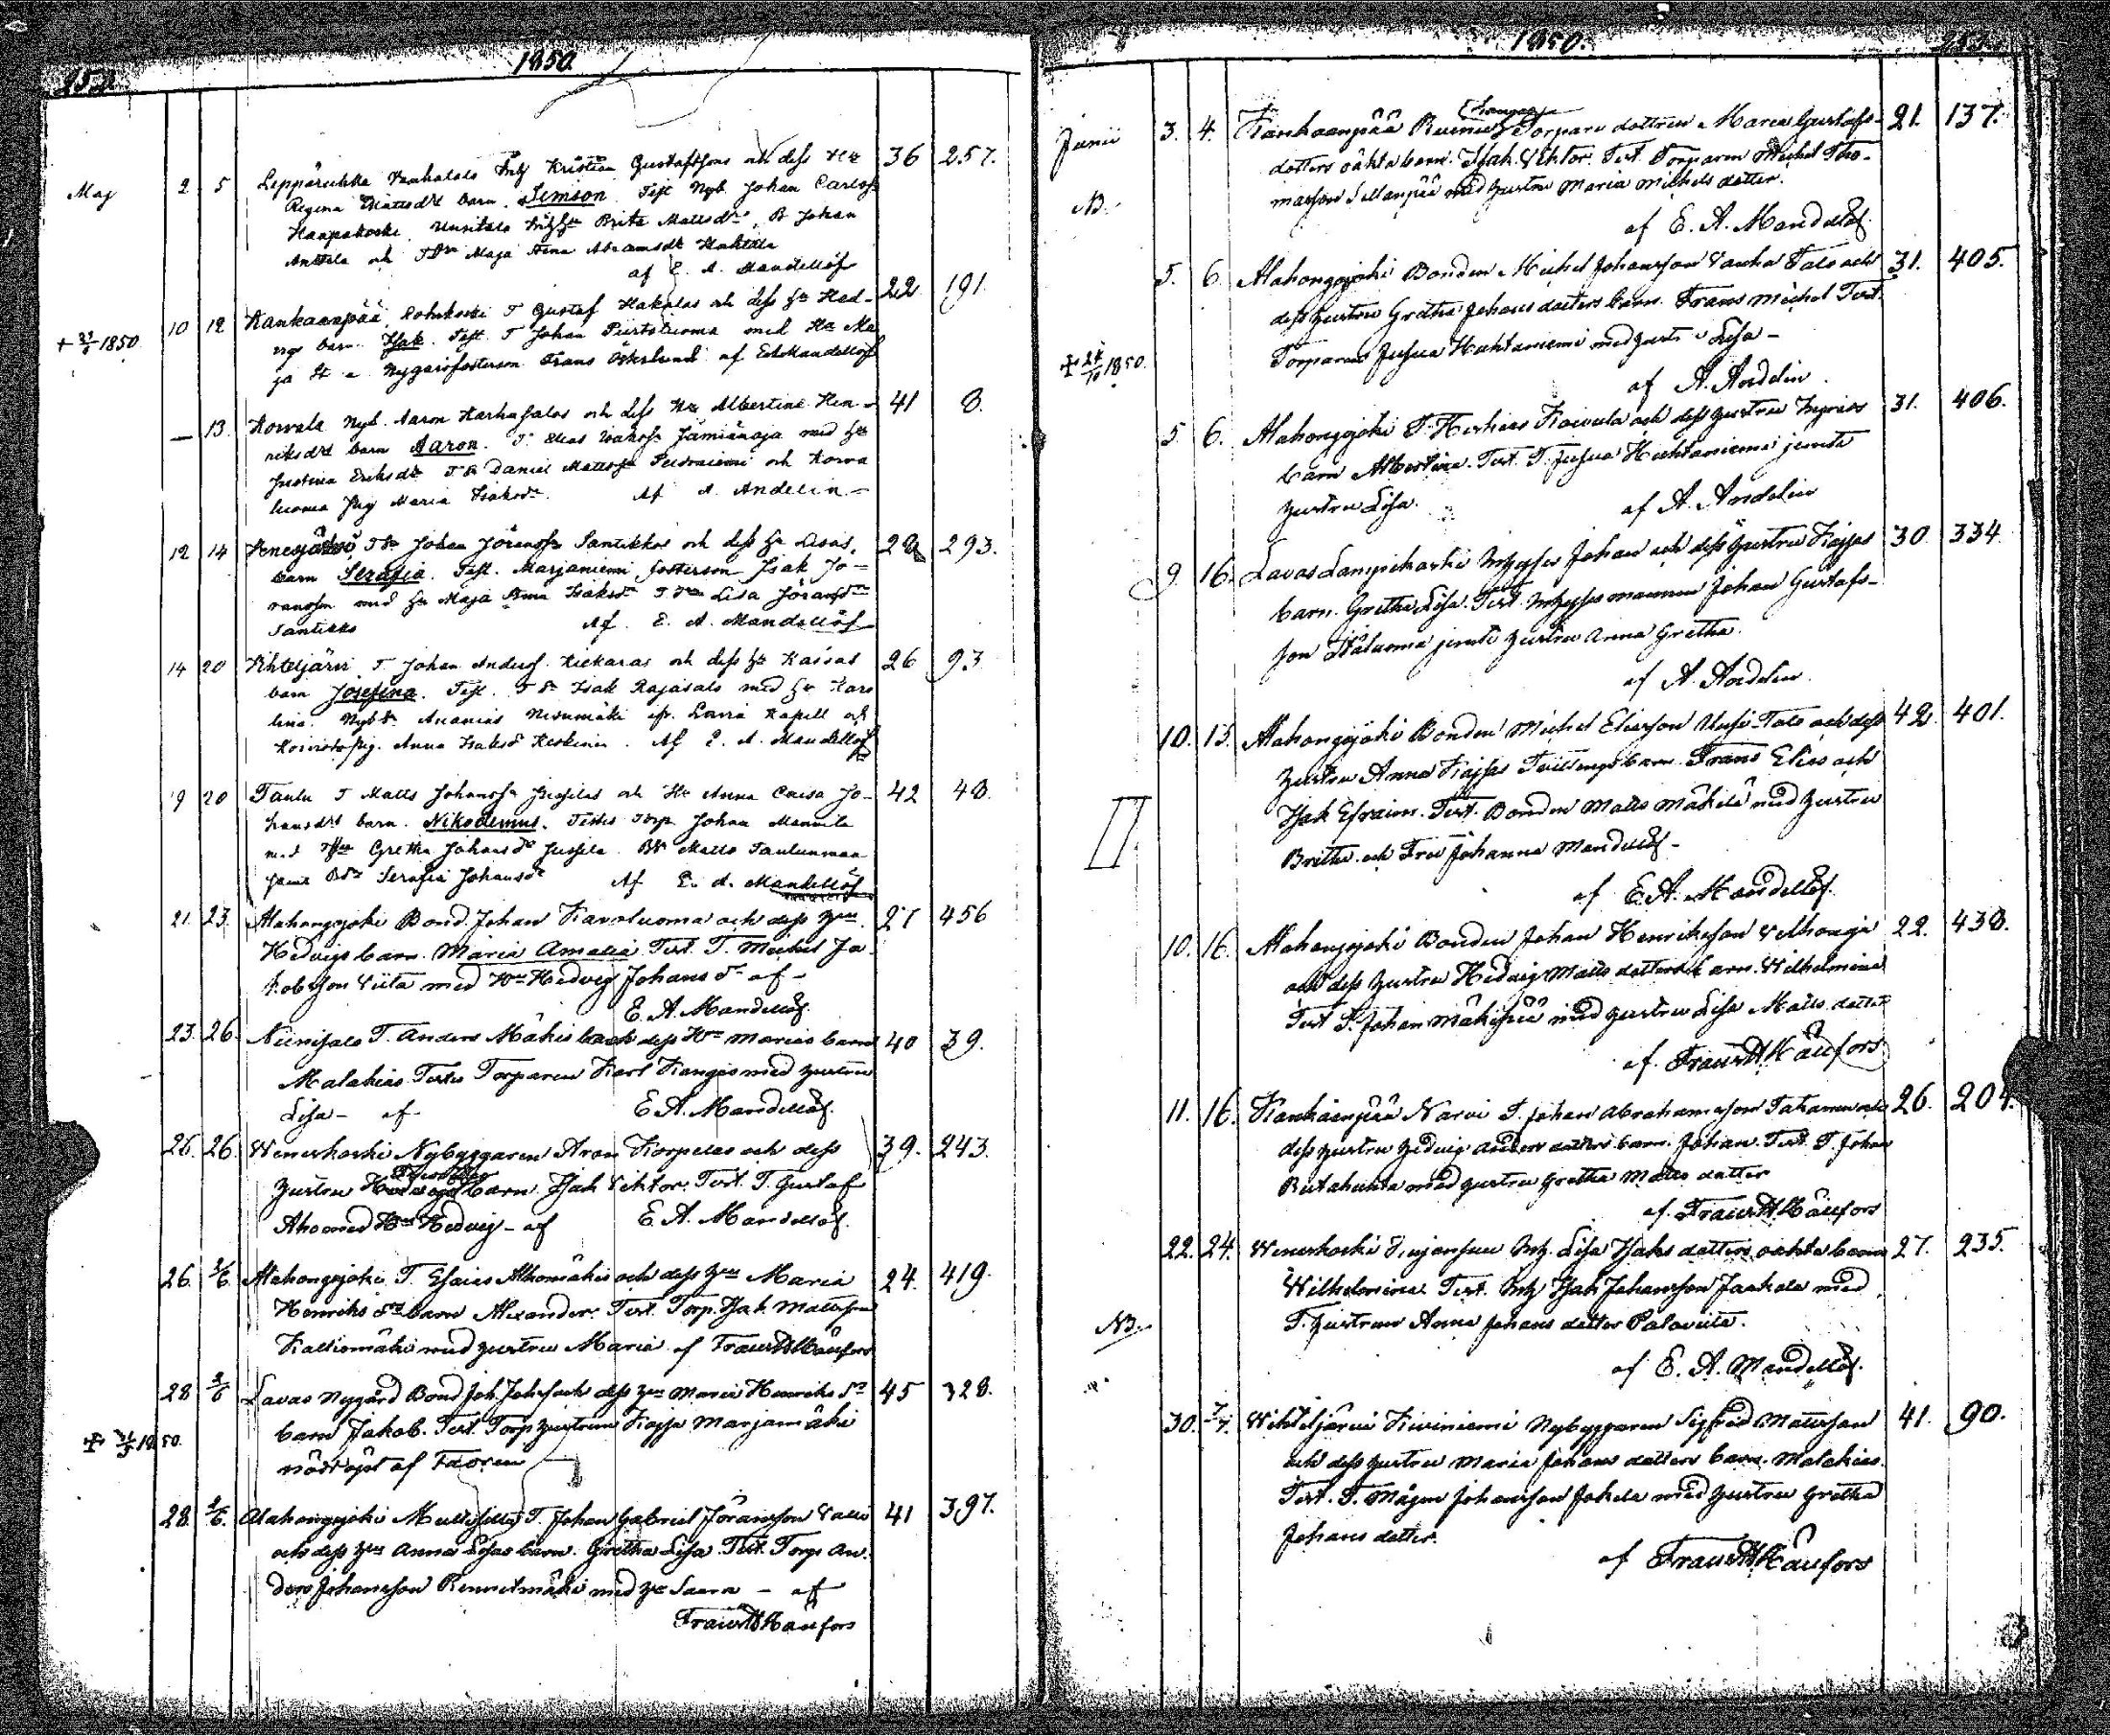 252. 1850.
May 2 5 Leppäruhka Vanhatalo Inh Kristian Gustafssons och dess Hu 36 257.
Regina Mattsdrs barn. Simson. Test Nyb. Johan Carlsss
Haapakoski, Uusitalo Inhsn Brita Mattsdr, B Johan
Anttila och Tdr Maja Stina Abramsdr Kahtila
af E. A. Mandellöf
+ 1850. 10 12 Kankaanpää, T Gustaf Hakalas och dess hu Hed- 22 191.
vigs barn. Isak. Test. T Johan Purtoluoma med Hu Ma
ja St Nygårsfosterson Frans Öskelund af E.A. Mandellöf
— 13. Korvala Nyb. Aaron Karhusalos och dess Hu Albertina Hen- 41 8.
riksdrs barn Aaron. T. Elias Isakss Jämiänoja med hu
Justina Eriksdr T Sn Daniel Mattsss och Korva
luoma Pig Maria Isaksdr. Af A. Andelin
12 14 T Johan Jöranss Santikkos och dess hu Lisas, 28 293.
barn Serafia. Test. Marjaniemi fosterson Isak Jö-
ransson med hu Maja Stina Isaksdr Tdr Lisa Jöransdr
Santikko Af. E. A. Mandellöf
14 20 Vihteljärvi T Johan Anderss. Kiekaras och dess hu Kaisas 26 93
barn Josefina. Test. T Sn Isak Rajasalo med hu Karo
lina. Nybs. Ananias Nevumäki ifr. Lavia Kapell och
Koivisto pig. Anna Isaksd Keskinen. Af E. A. Mandellöf
19 20 Taulu T Matts Johanss Jussilas och Hu Anna Caisa Jo- 42 48.
hansdrs barn. Nikodemus. Testes Torp Johan Mannila
med Hu Gretha Johansdr Jussila. Bs Matts Taulunmaa
samt Bdr Serafia Johansdr Af E. A. Mandellöf
21. 23. Alahongojoki Bond. Johan Karvaluoma och dess hru 27 456
Hedvigs barn. Maria Amalia Test. T. Michel Ja
kobsson Viita med Hu Hedvig Johans dr af
E. A. Mandellöf.
23. 26. Niinisalo T. Anders Mäkis och dess Hu Marias barn 40 39.
Malakias. Testes Torparen Karl Kangas med hustru
Lisa – af E A. Mandellöf.
26. 26. Wenerkoski Nybyggaren Aron Korpelas och dess 39. 243.
hustru barn. Isak Viktor. Test. T. Gustaf
Aho med Hu Hedvig – af E. A. Mandellöf.
26. 2/6 Alahongojoki T. Esaias Alhomäkis och dess hru Maria 24. 419.
Henriks drs barn Alexander. Test. Torp. Isak Mattsson
Kalliomäki med hustru Maria af Frans H Käufors
28 2/6 Lavas Nygård Bond Joh. Johss och dess hru Maria Henriks dr 45 328.
+ 1850. barn Jakob. Test. Torp hustrun Kajsa Marjamäki
nöddöpt af Faoren
28. 2/6. Alahongojoki T. Johan Gabriel Jöransson Valli 41 397.
och dess hru Anna Lisas barn. Gretha Lisa. Test. Torp. An-
ders Johansson med hu Saara – af
Frans H Käufors
1850.
Junii 3. 4. Kankaanpää Torpare dottren Maria Gustafs- 21. 137.
dotters oäkta barn. Isak Viktor. Test. Torparen Michel Tho-
NB. masson Sillanpää med hustru Maria Michels dotter.
af E. A. Mandellöf.
5. 6. Alahongojoki Bonden Michel Johansson Vanha Talo och 31. 405.
dess hustru Gretha Johans dotters barn. Frans Michel Test.
+ 24/10 1850. Torparen Josua Huhtaniemi med hustru Lisa –
af A. Andelin.
5. 6. Alahongojoki T. Koivula och dess hustru 31. 406.
barn Albertina. Test. T. Josua Huhtaniemi jemte
hustru Lisa. af A. Andelin
9. 16. Lavas Lampinkoski Inhyses Johan och dess hustru Kajsas 30 334.
barn. Gretha Lisa. Test. Inhysesmannen Johan Gustafs-
son jemte hustru Anna Gretha.
af A. Andelin.
10. 15. Alahongojoki Bonden Michel Eliasson Uusi-Talo och dess 42. 401.
hustru Anna Kajsas Tvillings barn. Frans Elias och
II Isak Efraim. Test. Bonden Matts Mäkilä med hustru
Britha och Fru Johanna Mandellöf –
af E. A. Mandellöf.
10. 16. Alahongojoki Bonden Johan Henriksson Vilhonoja 22. 438.
och dess hustru Hedvig Matts dotters barn. Wilhelmina
Test T. Johan Mäkipää med hustru Lisa Matts dotter
af. Frans H Käufors
11. 16. Kankaanpää Narvi T. Johan Abrahamsson Tahanen och 26. 204.
dess hustru Hedvig Anders dotters barn. Johan. Test. T. Johan
Rutahuhta med hustru Gretha Matts dotter
af. Frans H Käufors
22. 24. Wenerkoski Inh. Lisa Isaks dotters oäkta barn 27. 235.
Wilhelmina. Test. Inh Isak Johansson Jaakola med
NB. T. hustrun Anna Johans dotter Paloviita.
af E. A. Mandellöf.
30. 7/7. Wihteljärvi Kiviniemi Nybyggaren Sigfrid Mattsson 41. 90.
och dess hustru Maria Johans dotters barn. Malakias.
Test. T. Johansson Jokela med hustru Gretha
Johans dotter.
af Frans H Käufors